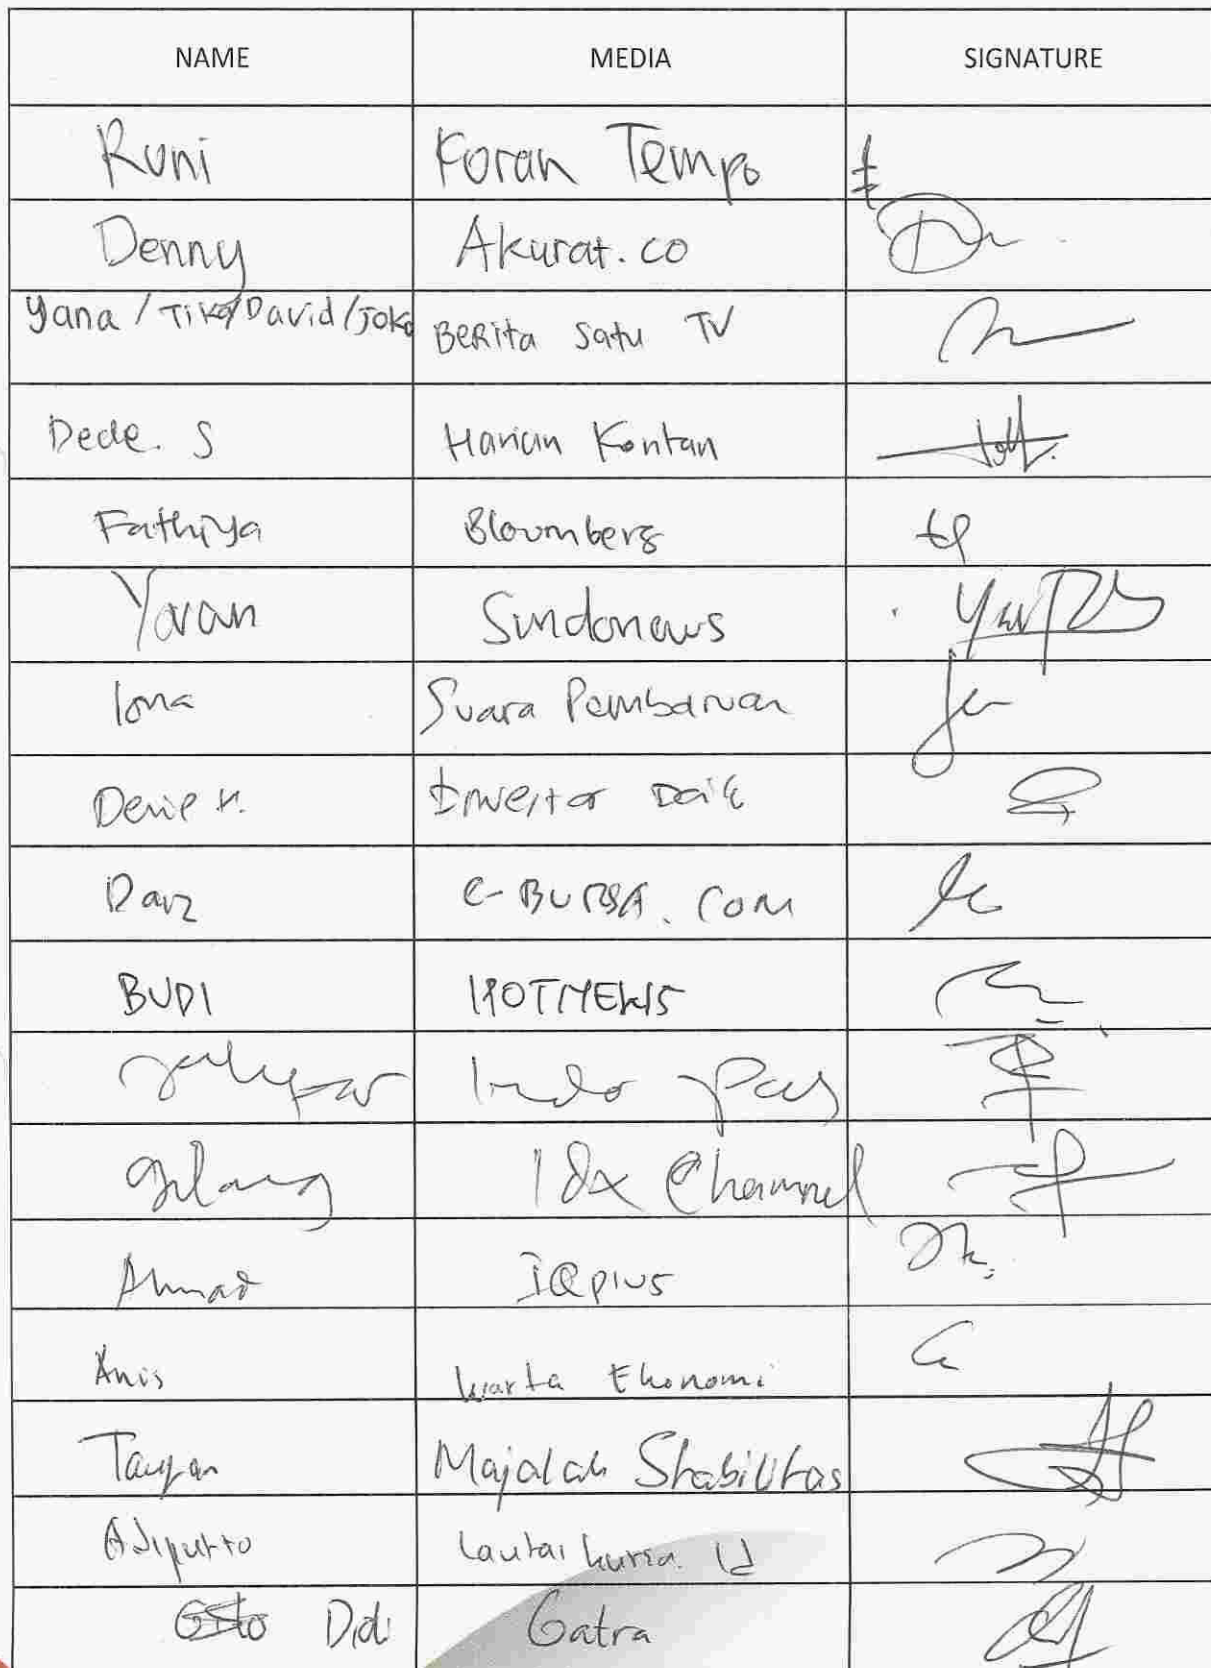 NAME MEDIA SIGNATURE
Runi Koran Tempo
Denny Akurat.co
Yana / Tika/David/Joko Berita Satu TV
Dede. S Harian Kontan
Fathiya Bloomberg
Yovan Sindonews
Iona Suara Pembaruan
Investor Daily
e-BURSA.com
BUDI HOTNEWS
Indo Pos
Gilang Idx Channel
Ahmad IQplus
Anis Warta Ekonomi
Majalah Stabilitas
Adiputro
Didi Gatra